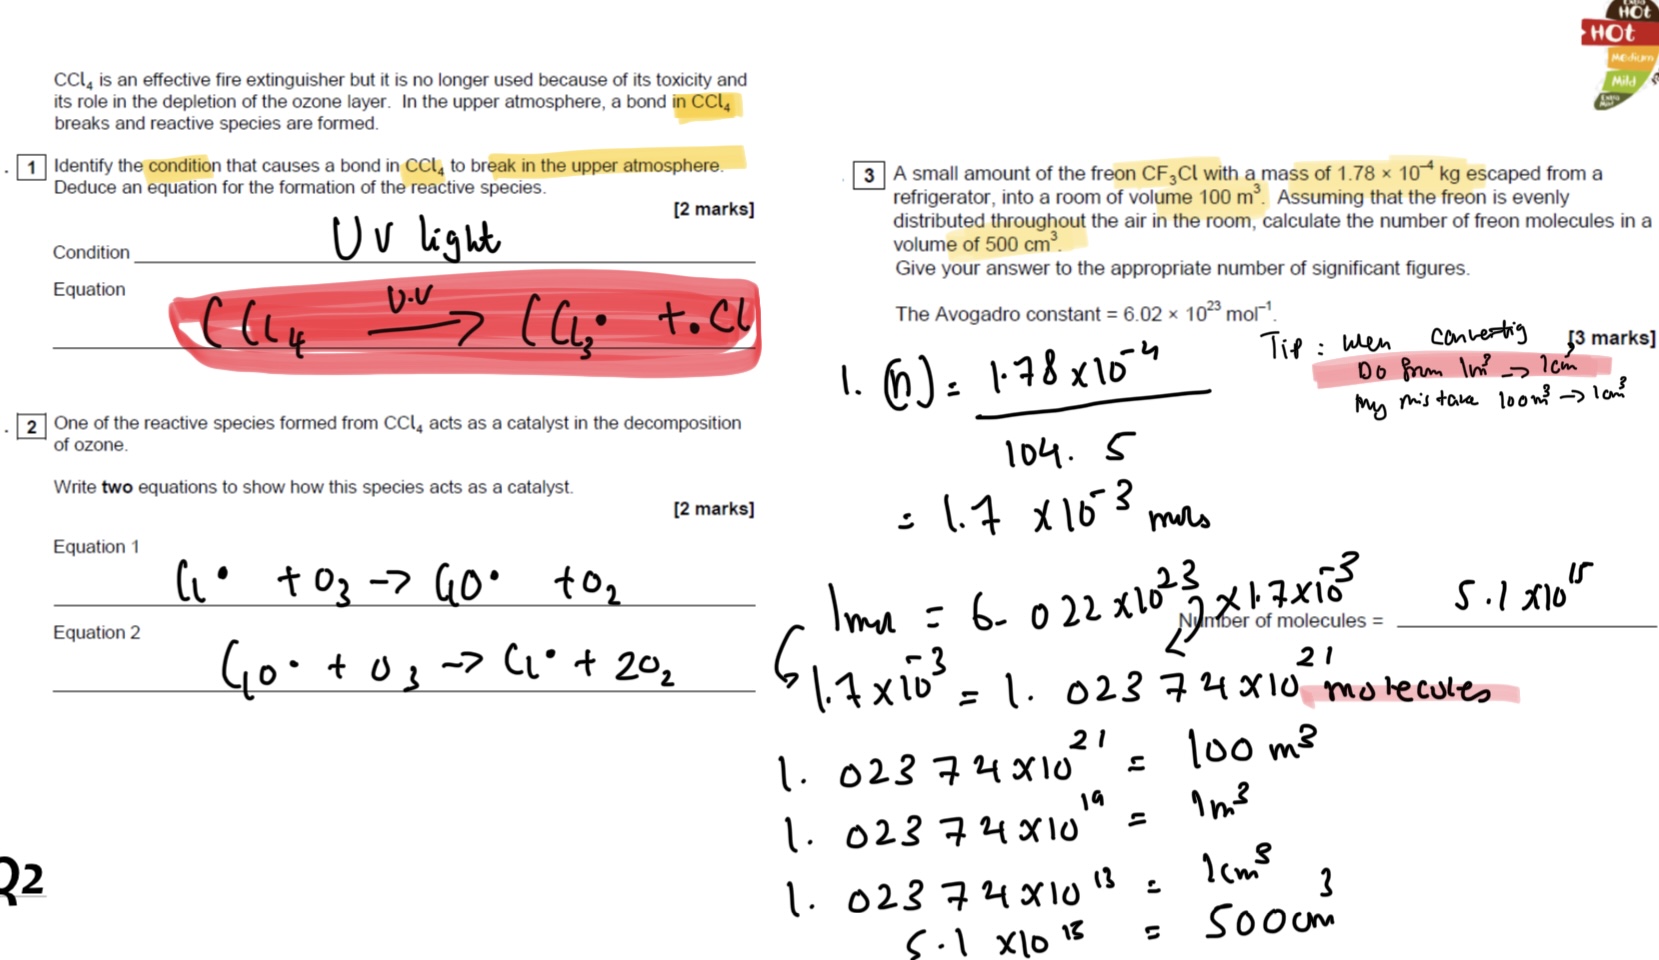 HOt
HOt
Medium
Mild
Extra
CCl₄ is an effective fire extinguisher but it is no longer used because of its toxicity and
its role in the depletion of the ozone layer. In the upper atmosphere, a bond in CCl₄
breaks and reactive species are formed.
. 1 Identify the condition that causes a bond in CCl₄ to break in the upper atmosphere.
Deduce an equation for the formation of the reactive species.
[2 marks]
Condition UV light
Equation CCl₄ U.V → CCl₃• + •Cl
. 2 One of the reactive species formed from CCl₄ acts as a catalyst in the decomposition
of ozone.
Write two equations to show how this species acts as a catalyst.
[2 marks]
Equation 1 Cl• + O₃ → ClO• + O₂
Equation 2 ClO• + O₃ → Cl• + 2O₂
Q2
. 3 A small amount of the freon CF₃Cl with a mass of 1.78 × 10⁻⁴ kg escaped from a
refrigerator, into a room of volume 100 m³. Assuming that the freon is evenly
distributed throughout the air in the room, calculate the number of freon molecules in a
volume of 500 cm³.
Give your answer to the appropriate number of significant figures.
The Avogadro constant = 6.02 × 10²³ mol⁻¹.
[3 marks]
Tip : When convertig
Do from 1m³ → 1cm³
My mistake 100m³ → 1cm³
1. (n) = 1.78 x10⁻⁴
104. 5
= 1.7 x10⁻³ mols
1mol = 6. 022 x10²³ x 1.7x10⁻³
Number of molecules = 5.1 x10¹⁵
1.7x10⁻³ = 1. 02374x10²¹ molecules
1. 02374x10²¹ = 100 m³
1. 02374x10¹⁹ = 1m³
1. 02374x10¹³ = 1cm³
5.1 x10¹⁵ = 500cm³